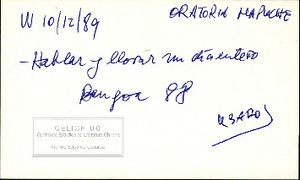 W 10/12/89 ORATORIA MAPUCHE
- Hablar y llorar un día entero
Bengoa 88
CELICH UC
Centro de Estudios de Literatura Chilena